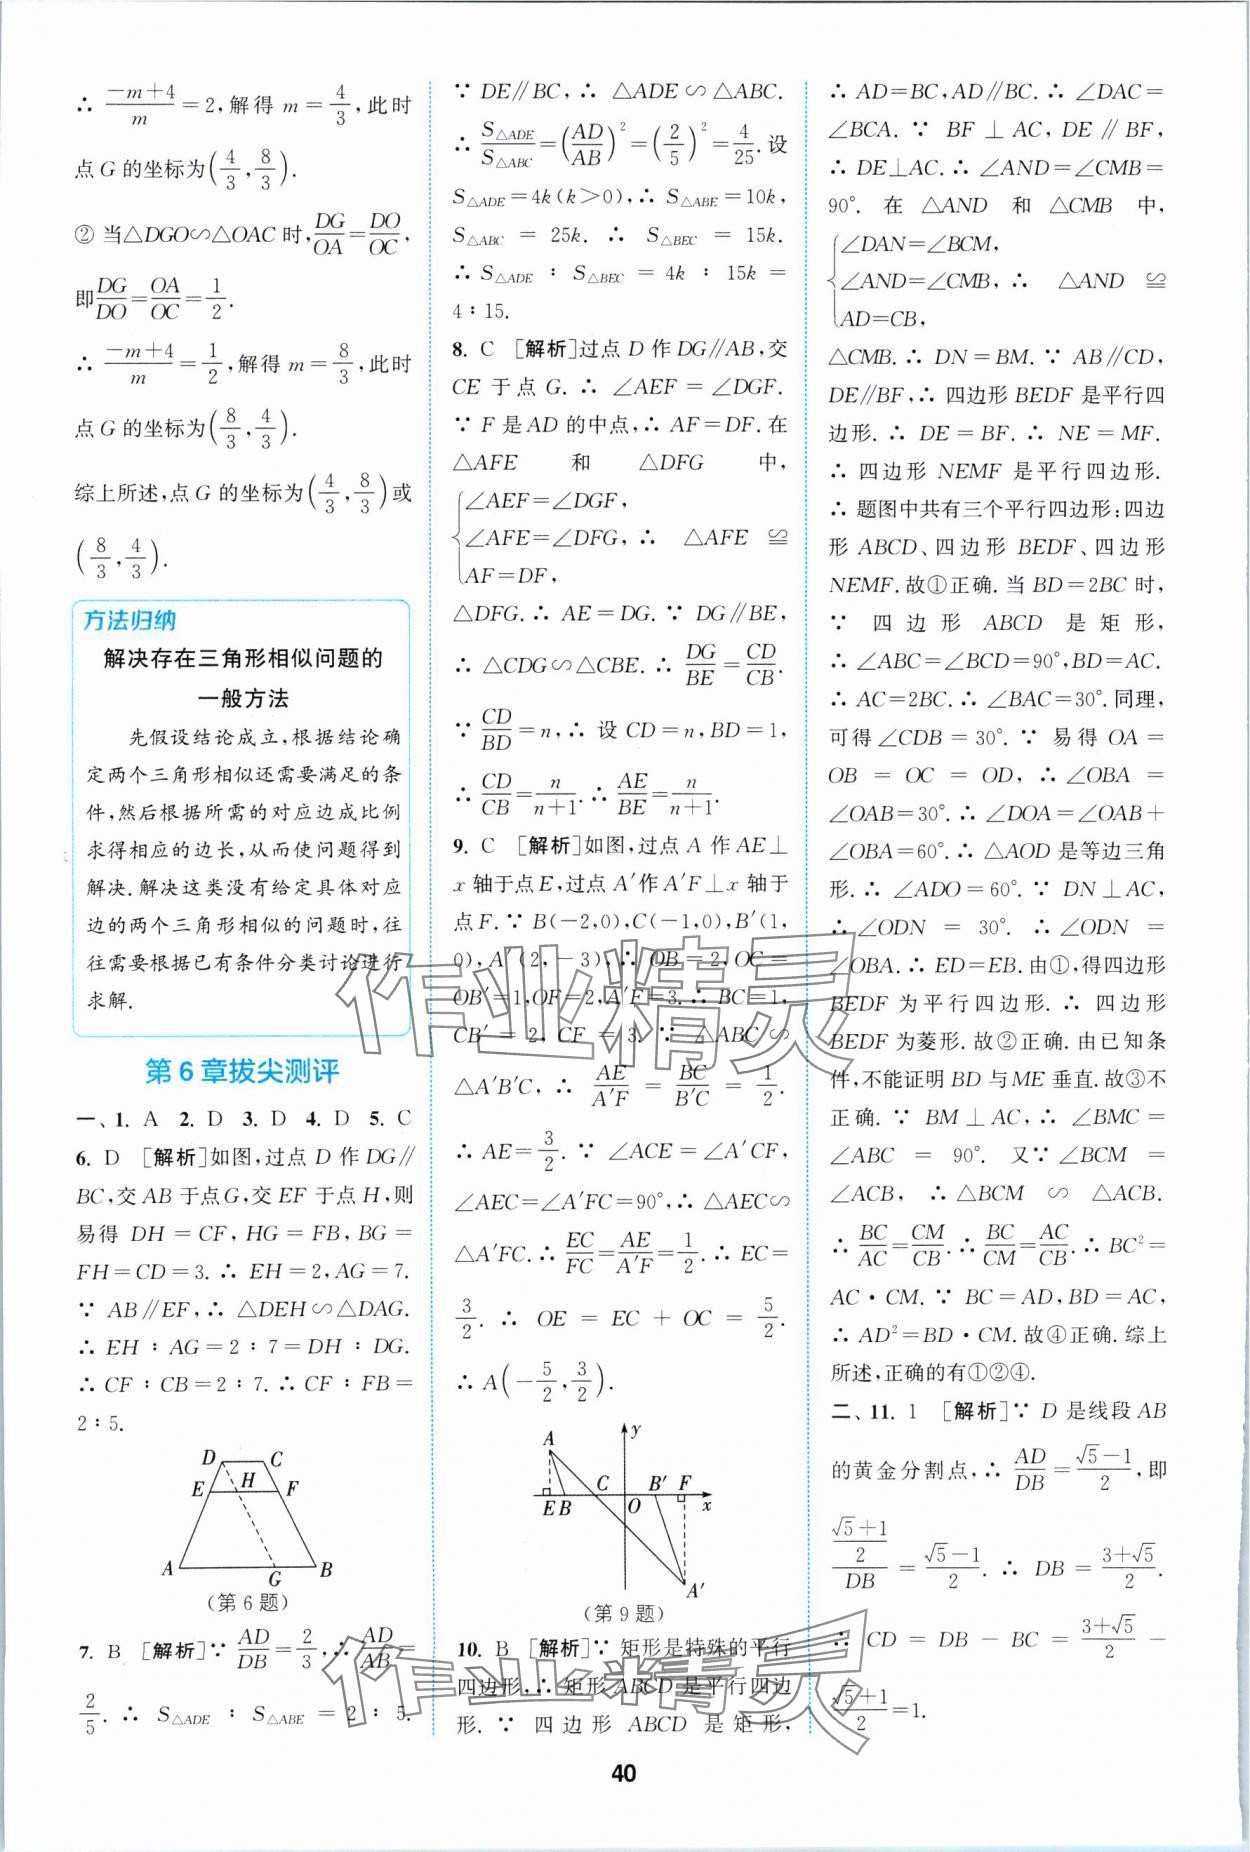 ∴ (−m+4)/m=2,解得 m=4/3,此时
点 G 的坐标为(4/3,8/3).
② 当△DGO∽△OAC 时,DG/OA=DO/OC,
即DG/DO=OA/OC=1/2.
∴ (−m+4)/m=1/2,解得 m=8/3,此时
点 G 的坐标为(8/3,4/3).
综上所述,点 G 的坐标为(4/3,8/3)或
(8/3,4/3).
方法归纳
解决存在三角形相似问题的
一般方法
先假设结论成立,根据结论确
定两个三角形相似还需要满足的条
件,然后根据所需的对应边成比例
求得相应的边长,从而使问题得到
解决.解决这类没有给定具体对应
边的两个三角形相似的问题时,往
往需要根据已有条件分类讨论进行
求解.
第 6 章拔尖测评
一、1. A 2. D 3. D 4. D 5. C
6. D [解析]如图,过点 D 作 DG∥
BC,交 AB 于点G,交 EF 于点 H,则
易得 DH=CF,HG=FB,BG=
FH=CD=3.∴ EH=2,AG=7.
∵ AB∥EF,∴ △DEH∽△DAG.
∴ EH∶AG=2∶7=DH∶DG.
∴ CF∶CB=2∶7.∴ CF∶FB=
2∶5.
D C
E H F
A G B
(第 6 题)
7. B [解析]∵ AD/DB=2/3,∴ AD/AB=
2/5.∴ S△ADE∶S△ABE=2∶5.
∵ DE∥BC,∴ △ADE∽△ABC.
∴ S△ADE/S△ABC=(AD/AB)²=(2/5)²=4/25.设
S△ADE=4k(k>0),∴ S△ABE=10k,
S△ABC=25k.∴ S△BEC=15k.
∴ S△ADE∶S△BEC=4k∶15k=
4∶15.
8. C [解析]过点 D 作 DG∥AB,交
CE 于点 G.∴ ∠AEF=∠DGF.
∵ F 是 AD 的中点,∴ AF=DF.在
△AFE 和 △DFG 中,
∠AEF=∠DGF,
∠AFE=∠DFG,∴ △AFE≌
AF=DF,
△DFG.∴ AE=DG.∵ DG∥BE,
∴ △CDG∽△CBE.∴ DG/BE=CD/CB.
∵ CD/BD=n,∴ 设 CD=n,BD=1,
∴ CD/CB=n/(n+1).∴ AE/BE=n/(n+1).
9. C [解析]如图,过点 A 作 AE⊥
x 轴于点 E,过点 A′作 A′F⊥x 轴于
点 F.∵ B(−2,0),C(−1,0),B′(1,
0),A′(2,−3),∴ OB=2,OC=
OB′=1,OF=2,A′F=3.∴ BC=1,
CB′=2,CF=3.∵ △ABC∽
△A′B′C,∴ AE/A′F=BC/B′C=1/2.
∴ AE=3/2.∵ ∠ACE=∠A′CF,
∠AEC=∠A′FC=90°,∴ △AEC∽
△A′FC.∴ EC/FC=AE/A′F=1/2.∴ EC=
3/2.∴ OE=EC+OC=5/2.
∴ A(−5/2,3/2).
A y
E B C O B′ F x
A′
(第 9 题)
10. B [解析]∵ 矩形是特殊的平行
四边形,∴ 矩形 ABCD 是平行四边
形.∵ 四边形 ABCD 是矩形,
∴ AD=BC,AD∥BC.∴ ∠DAC=
∠BCA.∵ BF⊥AC,DE∥BF,
∴ DE⊥AC.∴ ∠AND=∠CMB=
90°.在 △AND 和 △CMB 中,
∠DAN=∠BCM,
∠AND=∠CMB,∴ △AND≌
AD=CB,
△CMB.∴ DN=BM.∵ AB∥CD,
DE∥BF,∴ 四边形 BEDF 是平行四
边形.∴ DE=BF.∴ NE=MF.
∴ 四边形 NEMF 是平行四边形.
∴ 题图中共有三个平行四边形:四边
形 ABCD、四边形 BEDF、四边形
NEMF.故①正确.当 BD=2BC 时,
∵ 四边形 ABCD 是矩形,
∴ ∠ABC=∠BCD=90°,BD=AC.
∴ AC=2BC.∴ ∠BAC=30°.同理,
可得∠CDB=30°.∵ 易得 OA=
OB=OC=OD,∴ ∠OBA=
∠OAB=30°.∴ ∠DOA=∠OAB+
∠OBA=60°.∴ △AOD 是等边三角
形.∴ ∠ADO=60°.∵ DN⊥AC,
∴ ∠ODN=30°.∴ ∠ODN=
∠OBA.∴ ED=EB.由①,得四边形
BEDF 为平行四边形.∴ 四边形
BEDF 为菱形.故②正确.由已知条
件,不能证明 BD 与 ME 垂直.故③不
正确.∵ BM⊥AC,∴ ∠BMC=
∠ABC=90°.又∵ ∠BCM=
∠ACB,∴ △BCM∽△ACB.
∴ BC/AC=CM/CB.∴ BC/CM=AC/CB.∴ BC²=
AC·CM.∵ BC=AD,BD=AC,
∴ AD²=BD·CM.故④正确.综上
所述,正确的有①②④.
二、11. 1 [解析]∵ D 是线段 AB
的黄金分割点,∴ AD/DB=(√5−1)/2,即
((√5+1)/2)/DB=(√5−1)/2.∴ DB=(3+√5)/2.
∴ CD=DB−BC=(3+√5)/2−
(√5+1)/2=1.
40
作业精灵
作业精灵